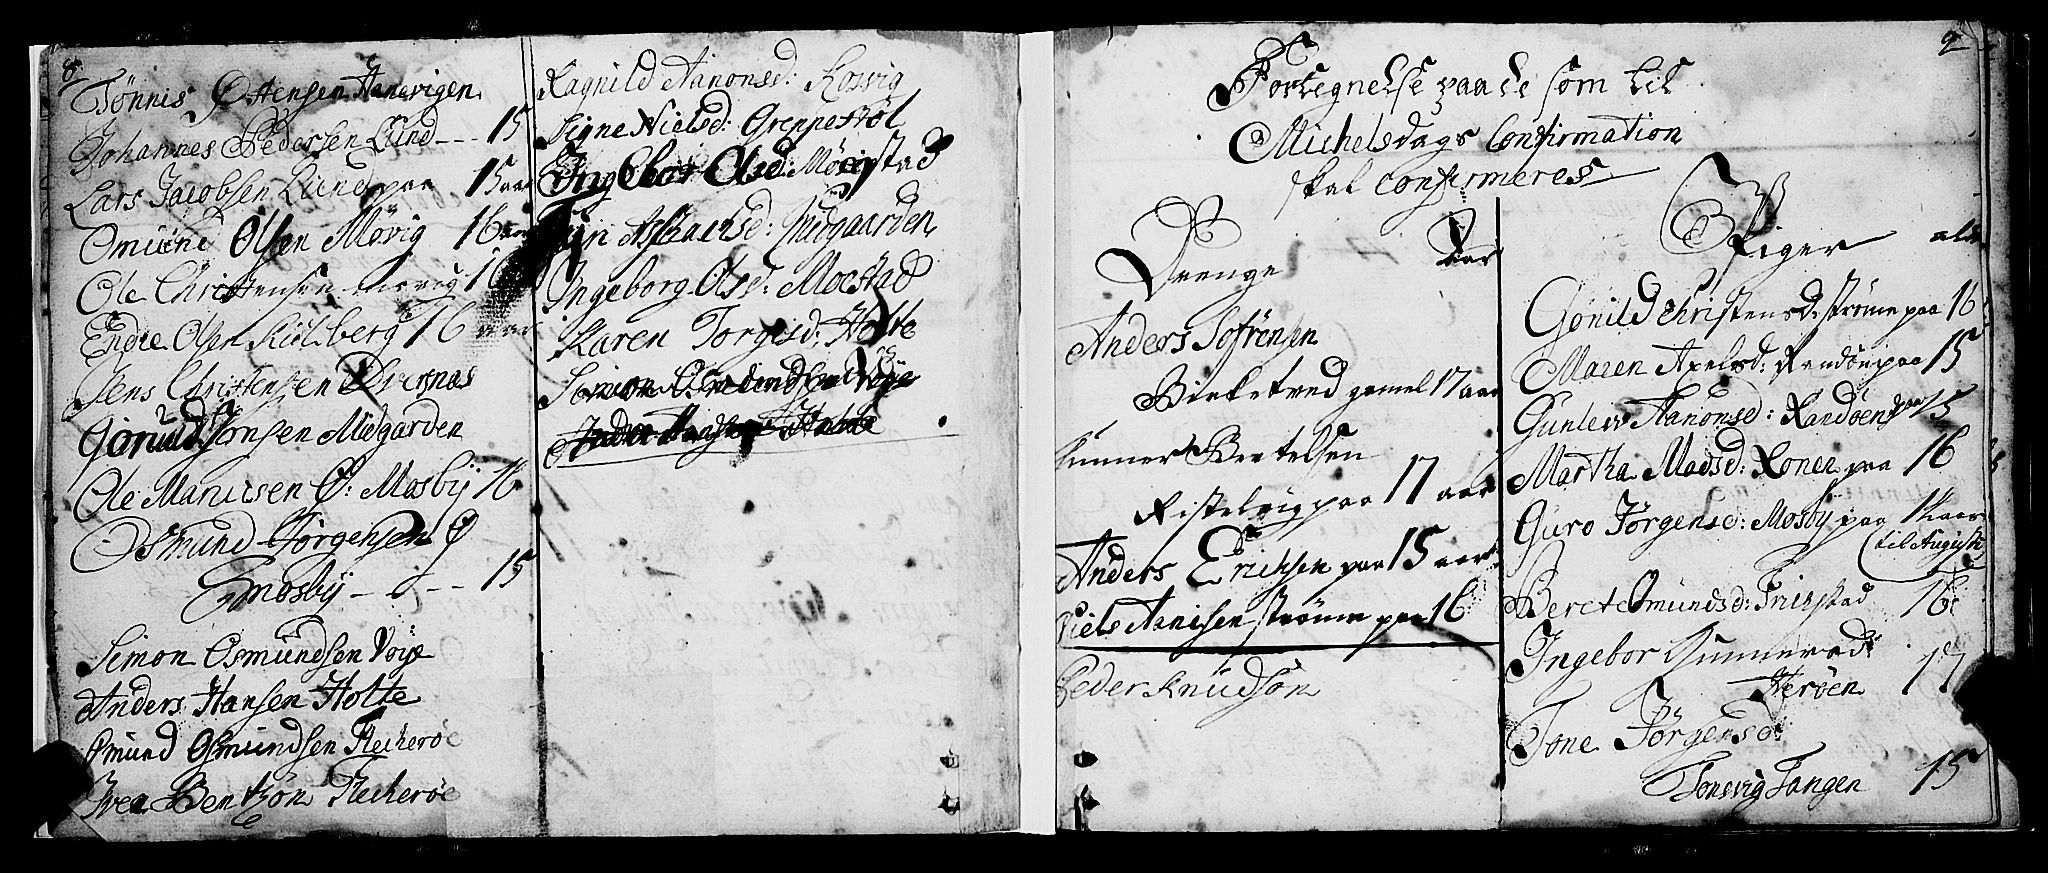 8
Tønnis Østensen Aanevigen
Johannes Pedersen Lund -- 15
Lars Jacobsen Lund paa 15 aar
Omund Olsen Møvig 16 aar
Ole Christensen møvig 16
Endre Olsen Kidlberg 16 aar
Jens Christensen Dversnæs
Gunud Jonsen Midgarden
Ole Mariusen Ø: Mosby 16
Osmund Jørgensen Ø
Mosby --- 15
Simon Osmundsen Vøÿe
Anders Hansen Holte
Omund Osmundsen Flecherøe
Iver Bentzøn Flecherøe
Ragnild Aanonsd: Kosvig
Signe Nielsd: Greppestøl
Ingebor Olsd: Møestad
Asslachsd: Hudgaarden
Ingeborg Olsd: Moestad
Karen Torgesd: Holte
Simon Osmundsen Vøÿe
Anders Hansen Holte
9
Fortegnelse paa de som til
Michelsdags Confirmation
skal confirmeres
Drenge Aar
Anders Sofrensen
Birketved gamel 17 aar
Gunner Bertelsen
Ristelvig paa 17 aar
Anders Erichsen paa 15 aar
Niels Aanisen strøm paa 16
Peder Knudsøn
Piger
Gønild Christensd: strøme paa 16
Maren Axelsd: Randøn paa 15
Gunlev Aanonsd: Randøen paa 15
Martha Madsd: Ronen paa 16
Guro Jørgensd: Mosby paa 14 aar
(til Augusti
Beret Omundsd: Fristad 16
Ingebor Gunnersd:
Herøen 17
Tone Jørgensd:
Torsvig Tangen 15